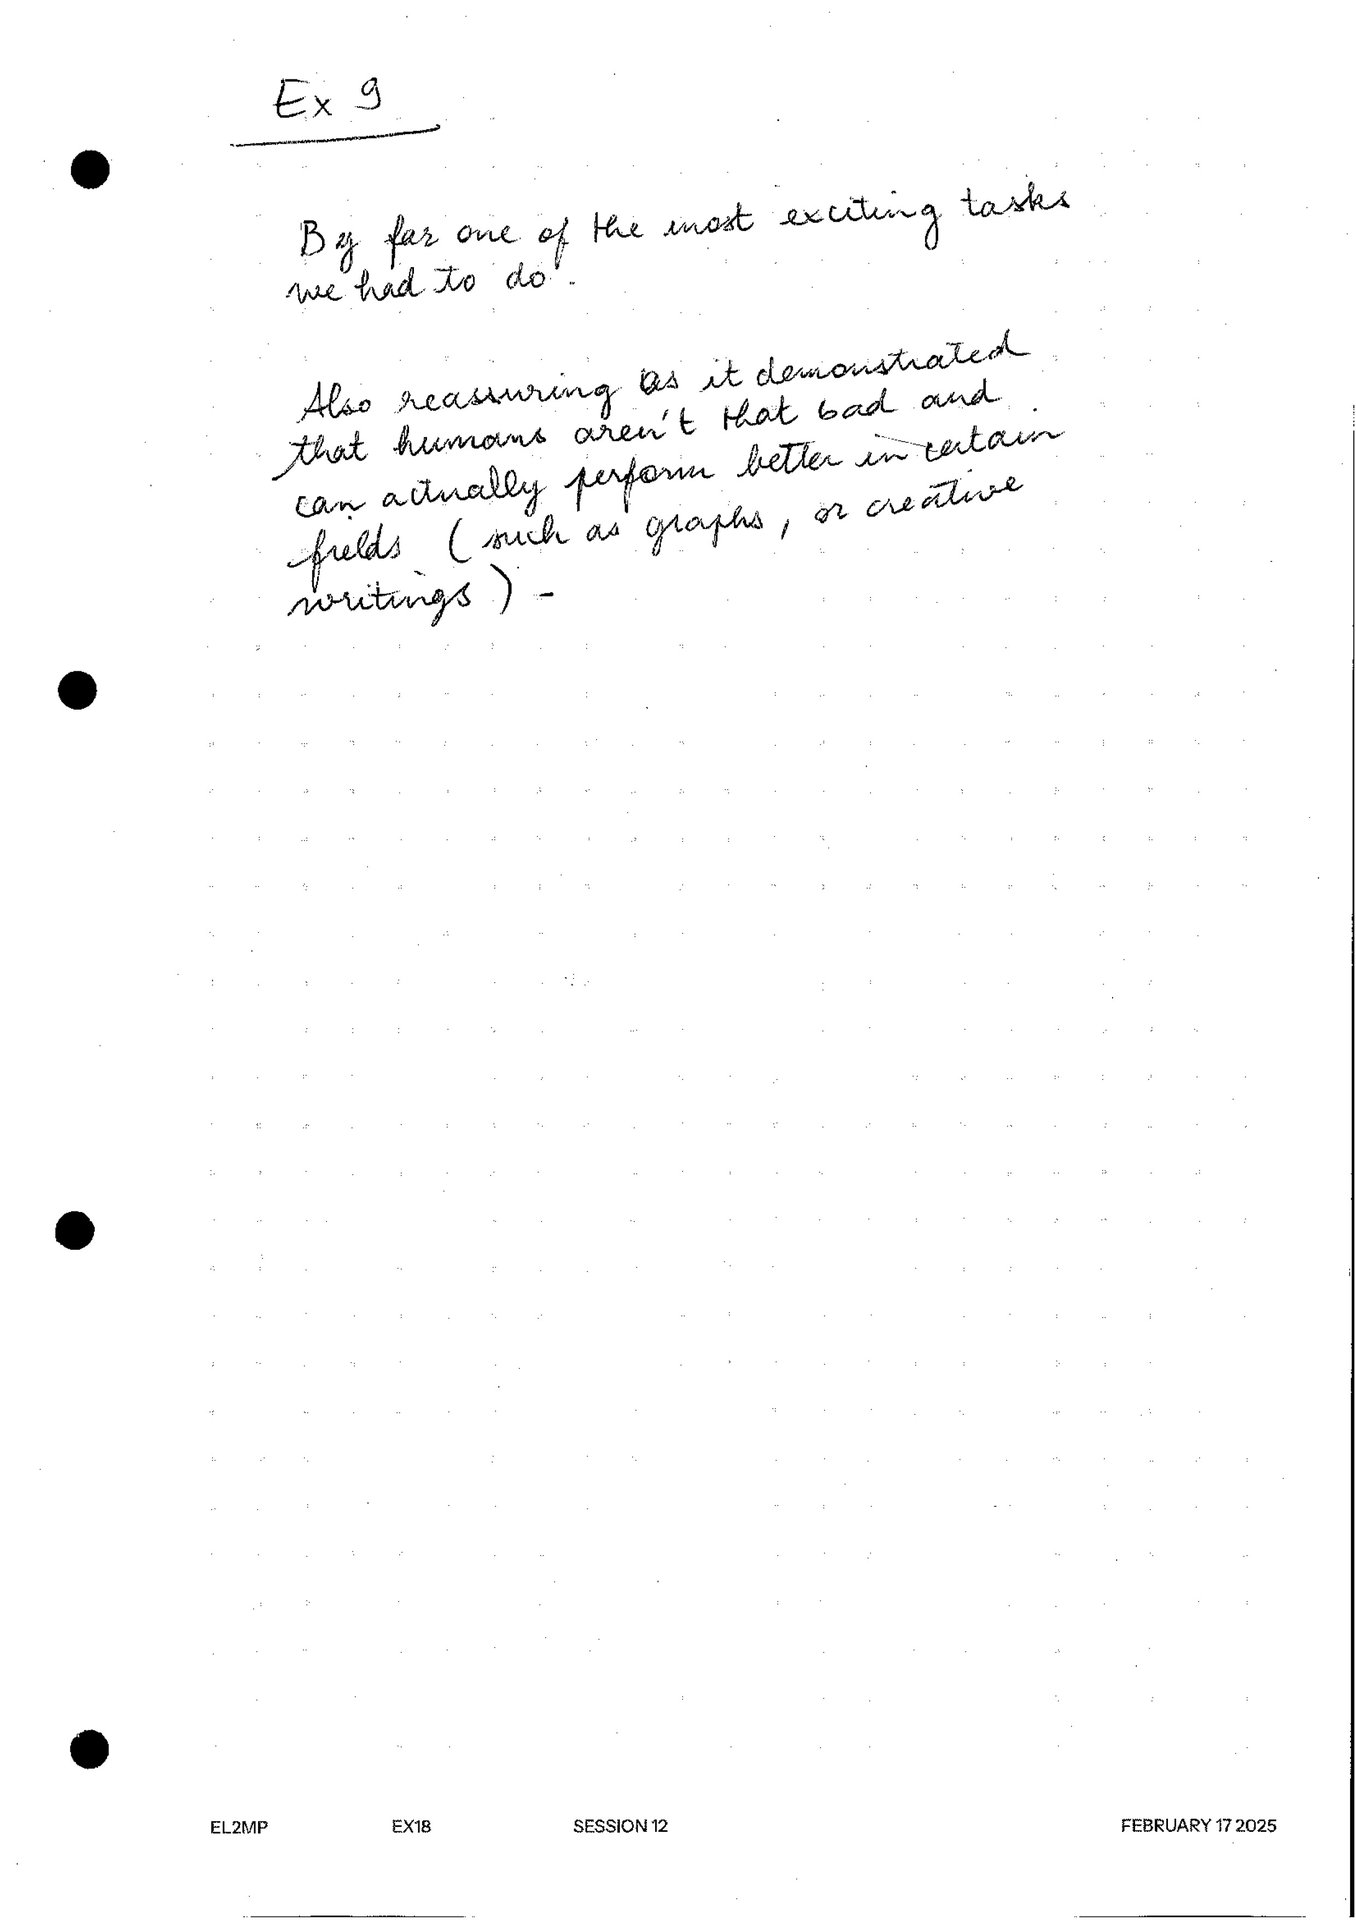 Ex 9
By far one of the most exciting tasks
we had to do.
Also reassuring as it demonstrated
that humans aren't that bad and
can actually perform better in certain
fields (such as graphs, or creative
writings) -
EL2MP EX18 SESSION 12 FEBRUARY 17 2025